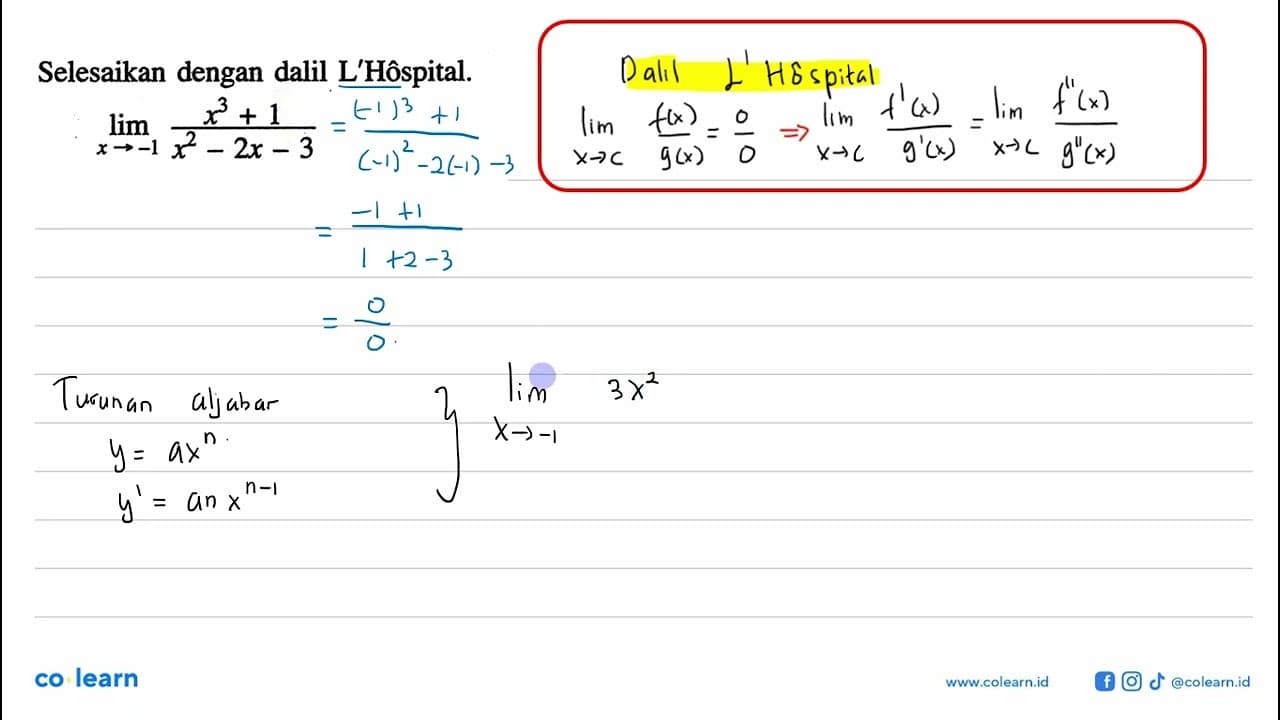 Selesaikan dengan dalil L'Hôspital.
lim x→-1 (x³ + 1)/(x² - 2x - 3) = ((-1)³ + 1)/((-1)² - 2(-1) - 3)
= (-1 + 1)/(1 + 2 - 3)
= 0/0
Dalil L'Hôspital
lim x→c f(x)/g(x) = 0/0 ⇒ lim x→c f'(x)/g'(x) = lim x→c f''(x)/g''(x)
Turunan aljabar
y = axⁿ
y' = an xⁿ⁻¹
} lim x→-1 3x²
co learn
www.colearn.id
@colearn.id